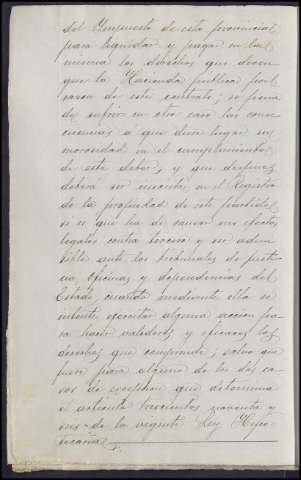 del Impuesto de esta provincia,
para liquidar y pagar en la
misma los derechos que deven
gue la Hacienda pública por
razon de este contrato; so pena
de sufrir en otro caso las conse
cuencias á que diere lugar su
morosidad en el cumplimiento
de este deber, y que despues
deberá ser inscrita en el Registro
de la propiedad de este partido,
si es que ha de causar sus efectos
legales contra tercero y ser admi
sible ante los tribunales de justi
cia, oficinas y dependencias del
Estado, cuando mediante ella se
intente ejercitar alguna accion pa
ra hacer valederos y eficaces los
derechos que comprende; salvo que
fuere para alguno de los dos ca
sos de escepcion que determina
el articulo trescientos noventa y
seis de la vigente Ley Hipo
tecaria